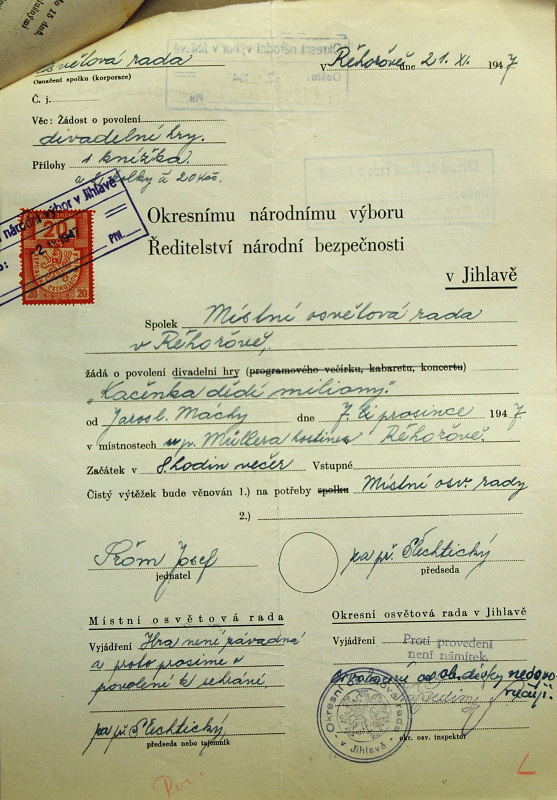 do 15 dnů,
osvětová rada
Označení spolku (korporace)
V Řehořově dne 21. XI. 1947
Č. j.
Věc: Žádost o povolení
divadelní hry.
Přílohy 1 knížka
a kolky á 20 Kčs.
národní výbor v Jihlavě
Příl.
20
20 20
Okresnímu národnímu výboru
Ředitelství národní bezpečnosti
v Jihlavě
Spolek Místní osvětová rada
v Řehořově,
žádá o povolení divadelní hry (programového večírku, kabaretu, koncertu)
„Kačenka dědí miliony."
od Jarosl. Machy dne 7. prosince 1947
v místnostech p. Müllera hostinec Řehořově.
Začátek v 8 hodin večer Vstupné
Čistý výtěžek bude věnován 1.) na potřeby spolku Místní osv. rady
2.)
Prům Josef
jednatel
Šlechtický
předseda
Místní osvětová rada
Vyjádření Hra není závadná
a proto prosíme o
povolení k sehrání
Šlechtický
předseda nebo tajemník
Okresní osvětová rada v Jihlavě
Vyjádření Proti provedení
není námitek.
od ob. dávky nedopo
ručuji.
Okresní osvětová rada
v Jihlavě
okr. osv. inspektor